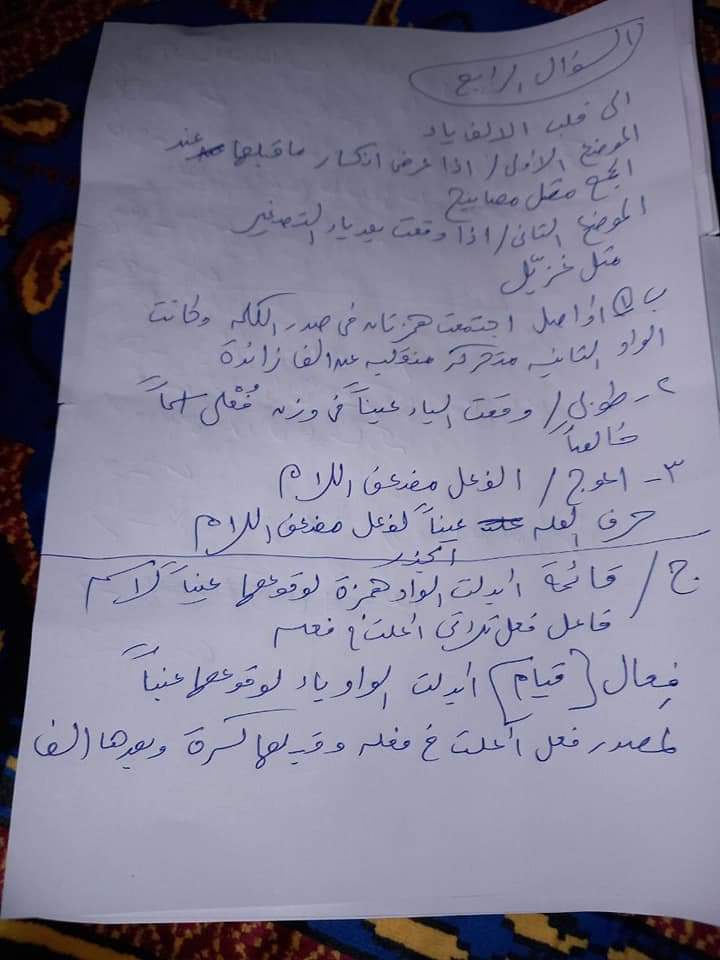 السؤال الرابع
الى قلب الالف ياء
الموضع الاول / اذا عرض انكسار ما قبلها عند
الجمع مثل مصابيح
الموضع الثاني / اذا وقعت بعد ياء التصغير
مثل غزيّل
ب ① أواصل اجتمعت همزتان في صدر الكلمه وكانت
الواو الثانيه متحركه منقلبه عن الف زائدة
٢- طوبى / وقعت الياء عيناً في وزن فُعْلى اسماً
خالصاً
٣- اعوج / الفعل مضعف اللام
حرف العله عيناً لفعل مضعف اللام
ج / قائمة أبدلت الواو همزة لوقوعها عيناً لاسم
فاعل فعل ثلاثي أعلت في فعله
فِعال (قيام) أبدلت الواو ياء لوقوعها عيناً
لمصدر فعل أعلت في فعله وقبلها كسرة وبعدها الف